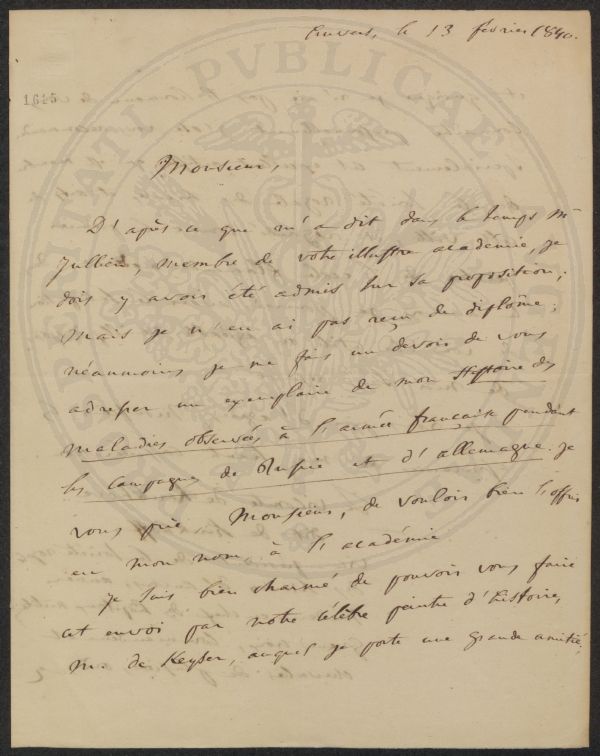 Anvers, le 13 février 1840.
1645
PVBLICAE
Monsieur,
D'après ce que m'a dit dans le temps Mr
Jullien, membre de votre illustre académie, je
dois y avoir été admis sur sa proposition;
mais je n'en ai pas reçu de diplôme;
néanmoins je me fais un devoir de vous
adresser un exemplaire de mon Histoire des
maladies observées à l'armée française pendant
les campagnes de Russie et d'allemagne. je
vous prie, Monsieur, de vouloir bien l'offrir
en mon nom, à l'académie.
je suis bien charmé de pouvoir vous faire
cet envoi par notre célèbre peintre d'histoire,
M. de Keyser, auquel je porte une grande amitié,